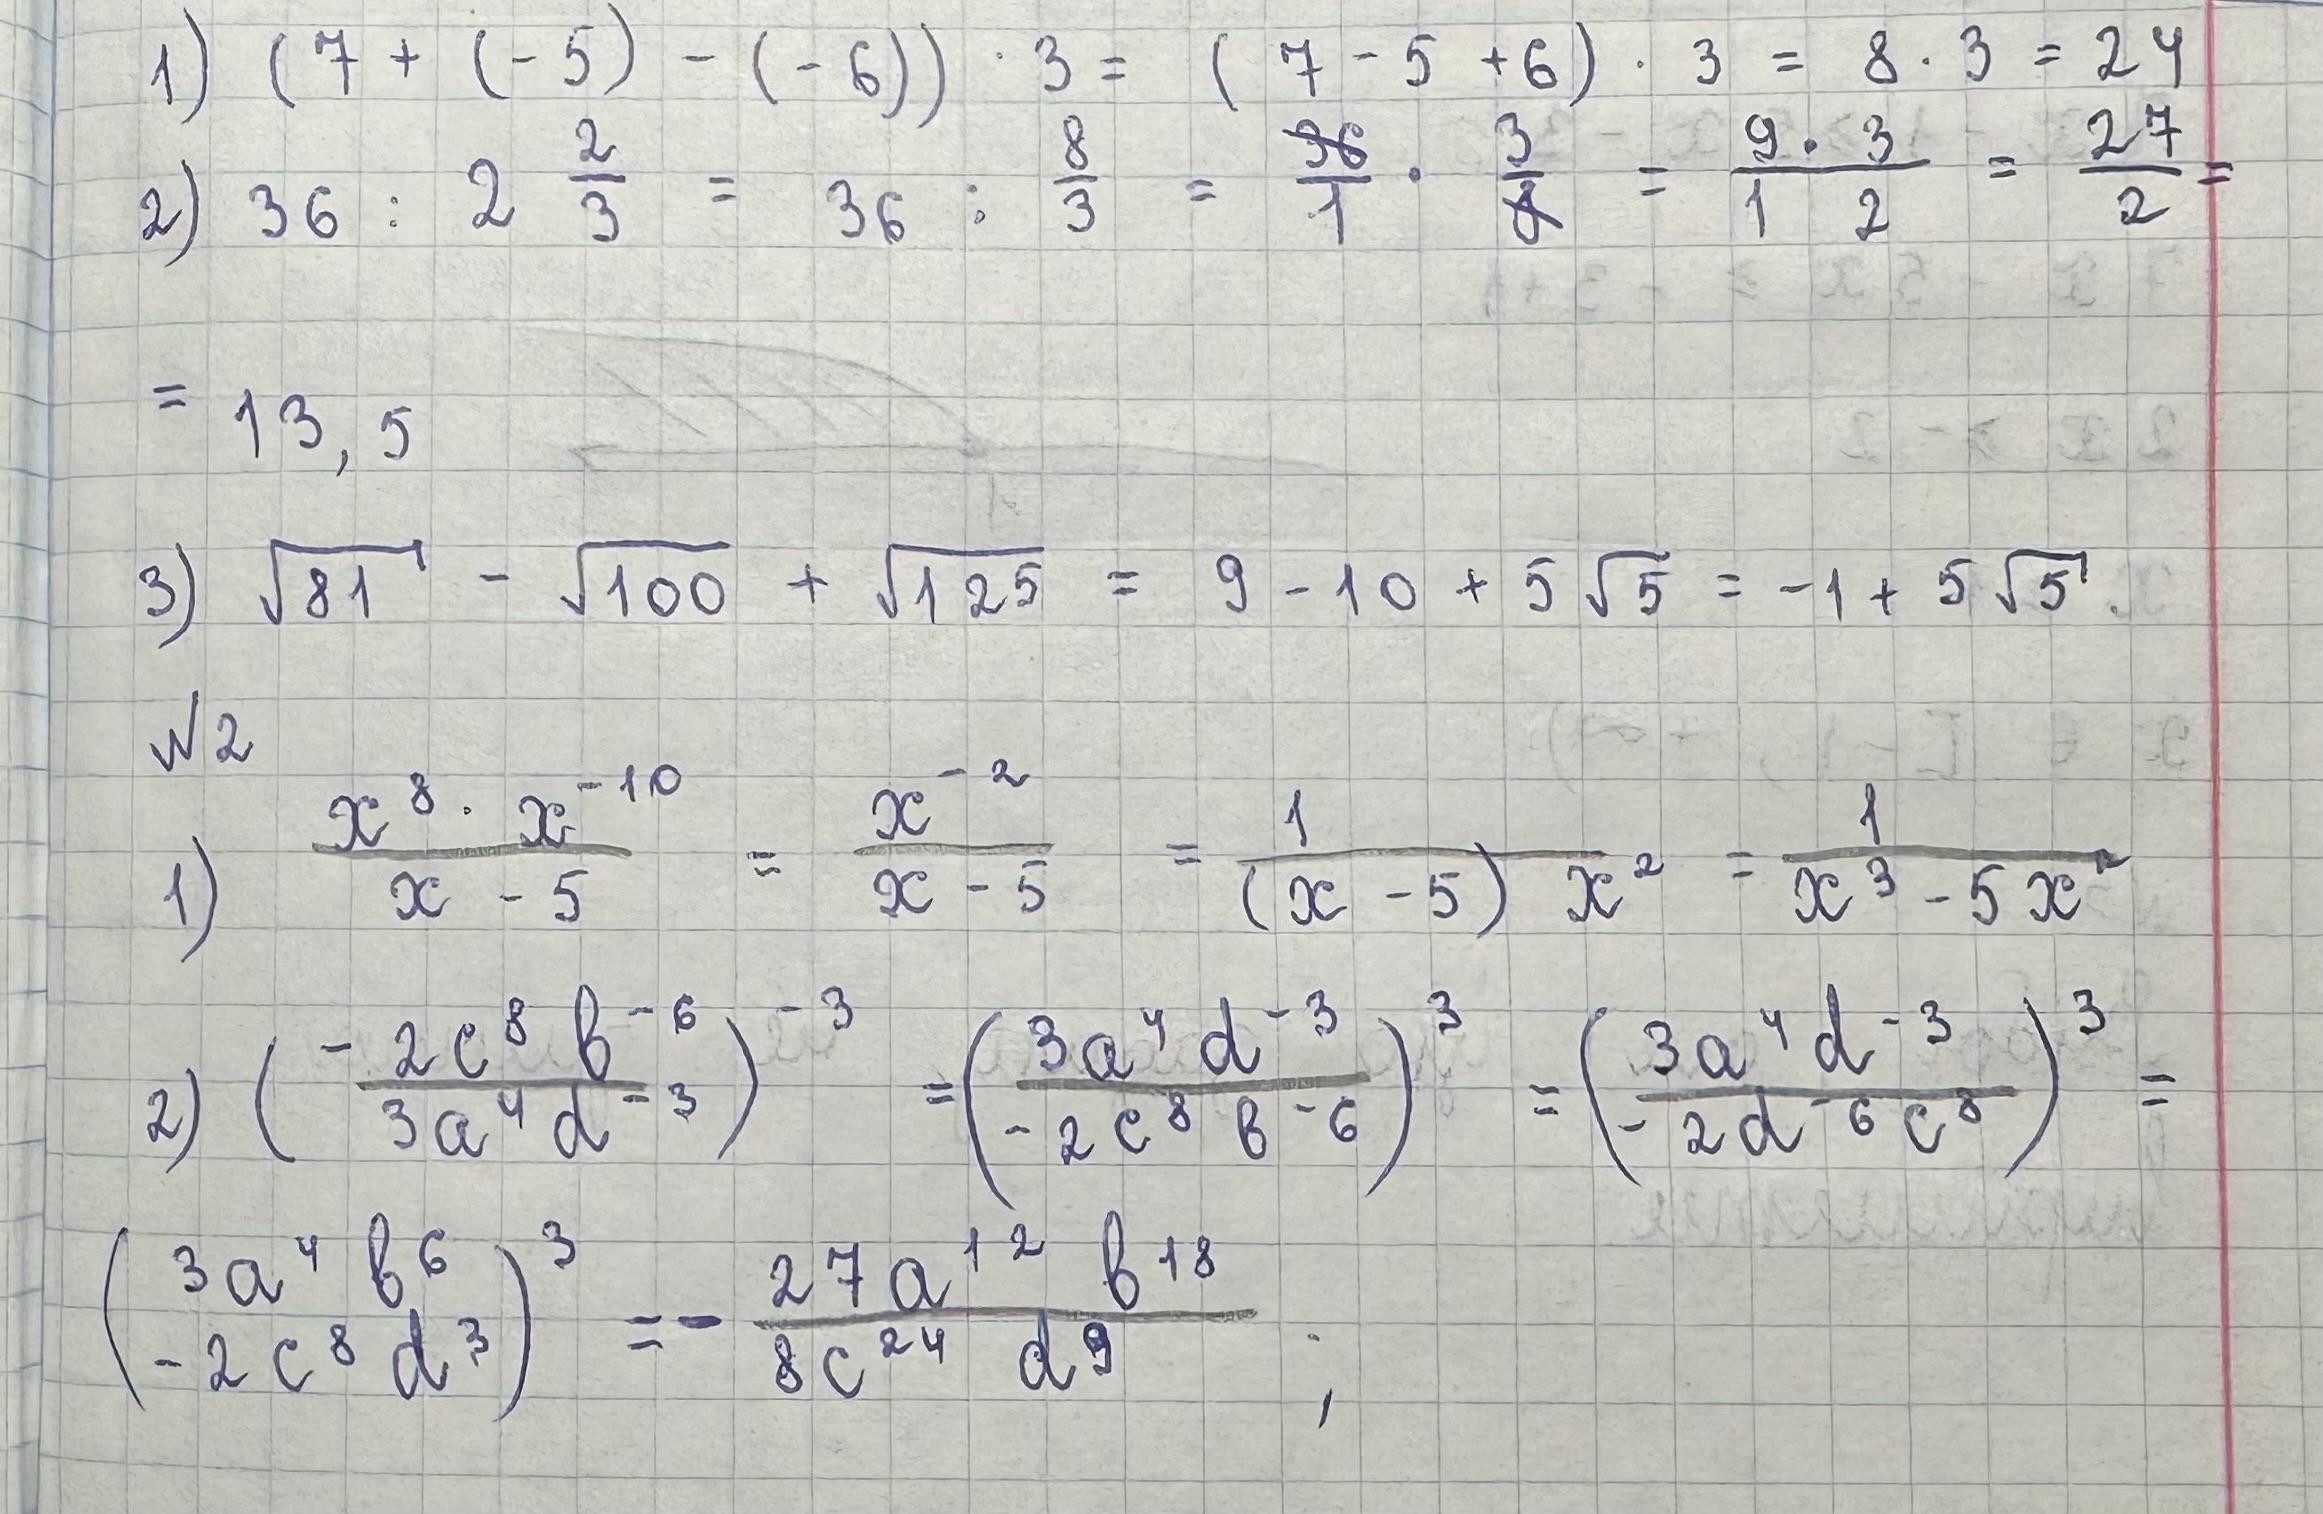 1) (7 + (-5) - (-6)) · 3 = (7 - 5 + 6) · 3 = 8 · 3 = 24
2) 36 : 2 2/3 = 36 : 8/3 = 36/1 · 3/8 = (9 · 3)/(1 2) = 27/2 =
= 13,5
3) √81 - √100 + √125 = 9 - 10 + 5√5 = -1 + 5√5.
№2
1) (x^8 · x^-10)/(x - 5) = x^-2/(x - 5) = 1/((x - 5) x^2) = 1/(x^3 - 5x^2)
2) ((-2c^8 b^-6)/(3a^4 d^-3))^-3 = ((3a^4 d^-3)/(-2c^8 b^-6))^3 = ((3a^4 d^-3)/(-2d^-6 c^8))^3 =
((3a^4 b^6)/(-2c^8 d^3))^3 = - (27a^12 b^18)/(8c^24 d^9) ;